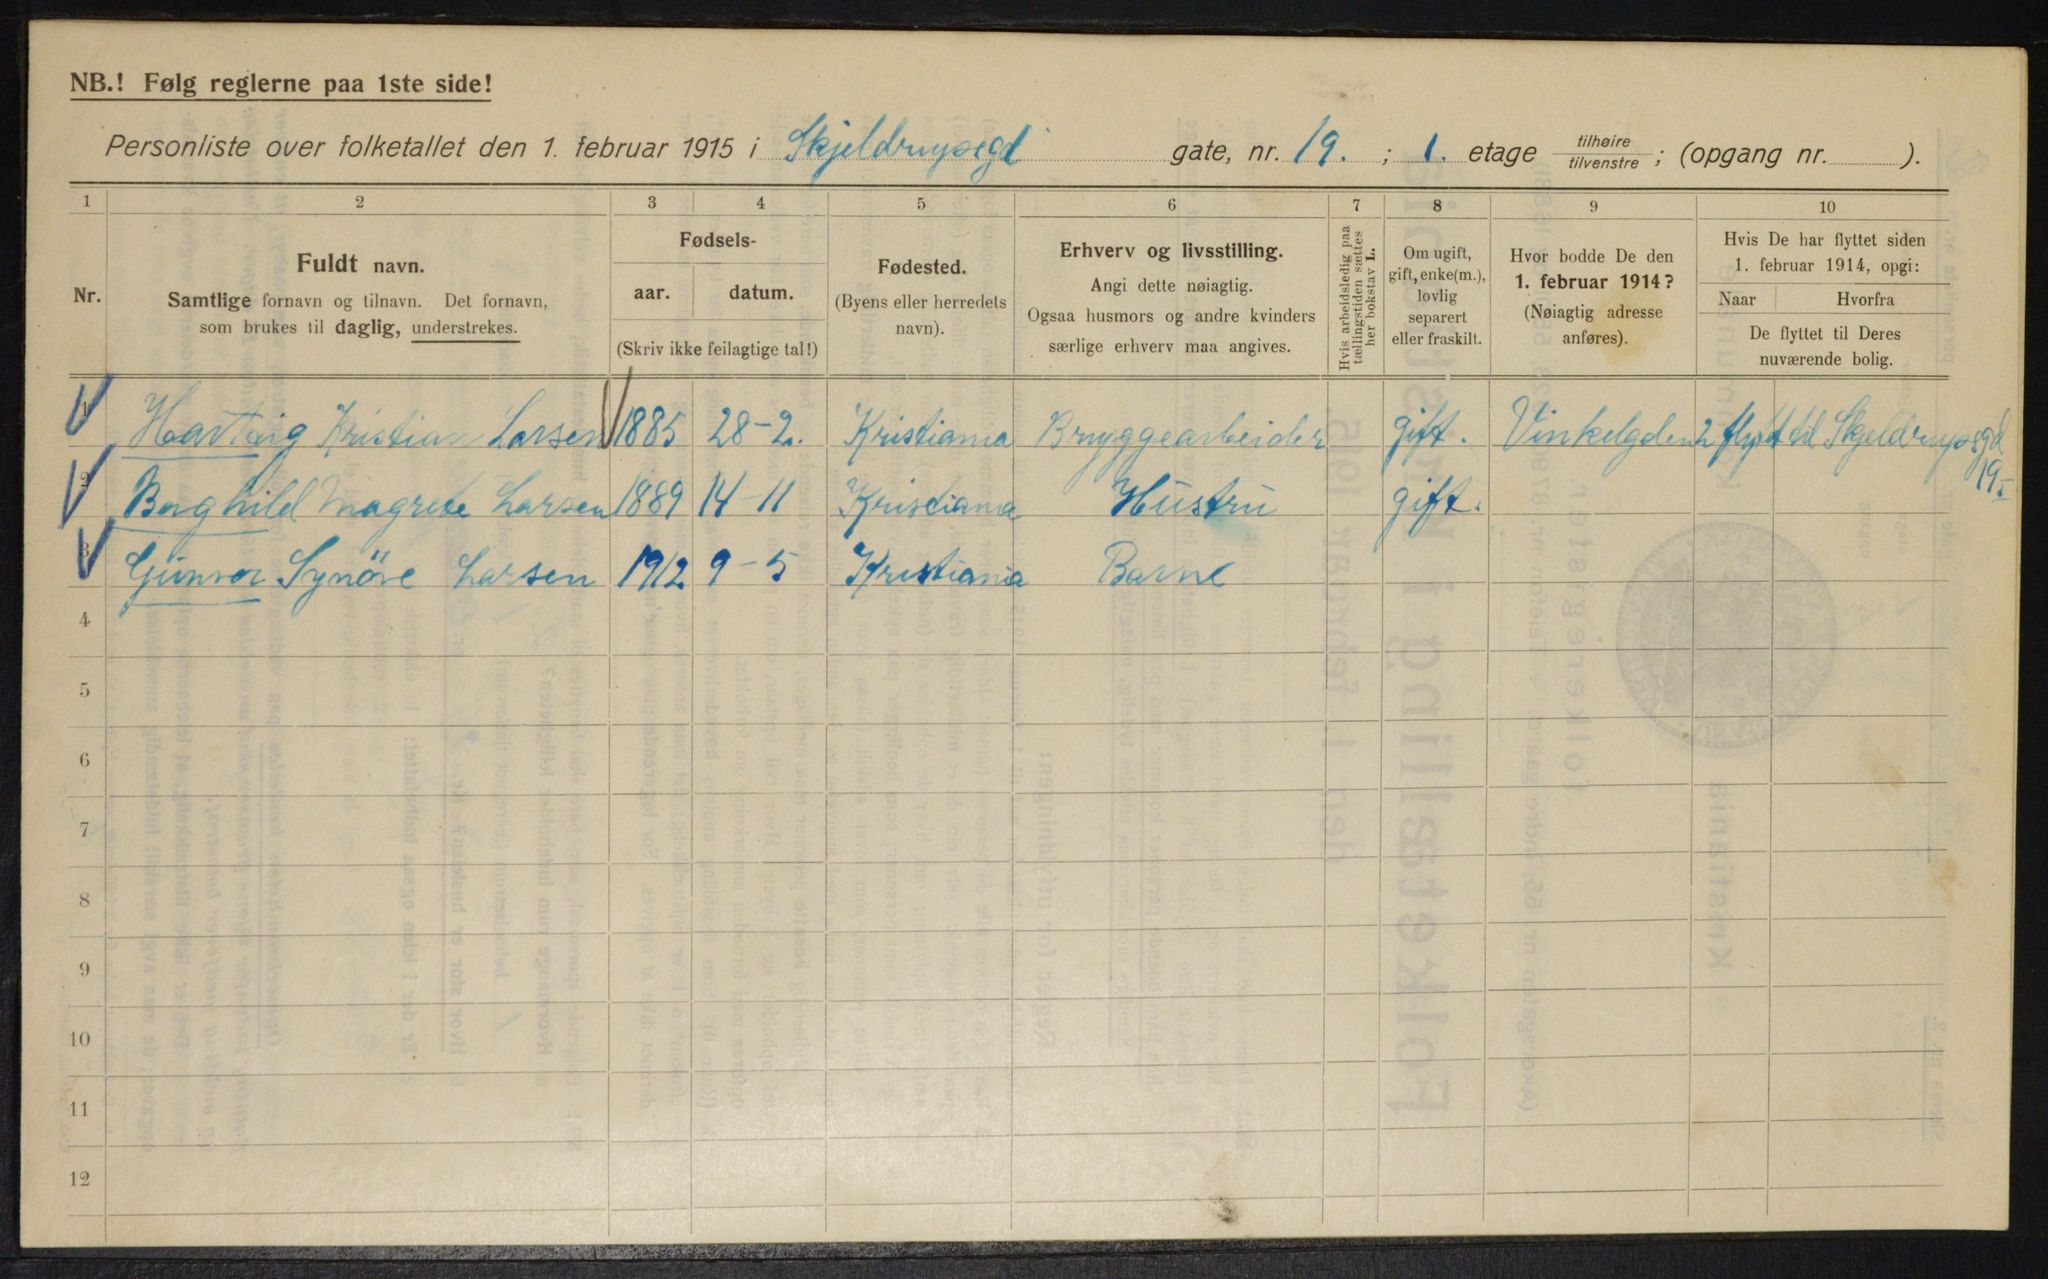 NB.! Følg reglerne paa 1ste side!
Personliste over folketallet den 1. februar 1915 i Skjeldrupsgd gate, nr. 19. ; 1. etage tilhøire / tilvenstre ; (opgang nr. ).
1 2 3 4 5 6 7 8 9 10
Nr.
Fuldt navn.
Samtlige fornavn og tilnavn. Det fornavn,
som brukes til daglig, understrekes.
Fødsels-
aar. datum.
(Skriv ikke feilagtige tal!)
Fødested.
(Byens eller herredets
navn).
Erhverv og livsstilling.
Angi dette nøiagtig.
Ogsaa husmors og andre kvinders
særlige erhverv maa angives.
Hvis arbeidsledig paa
tællingstiden sættes
her bokstav L.
Om ugift,
gift, enke(m.),
lovlig
separert
eller fraskilt.
Hvor bodde De den
1. februar 1914?
(Nøiagtig adresse
anføres).
Hvis De har flyttet siden
1. februar 1914, opgi:
Naar Hvorfra
De flyttet til Deres
nuværende bolig.
1 Kristian Larsen 1885 28-2. Kristiania Bryggearbeider gift. Vinkelgden 2 flytt til Skjeldrupsgd
19.
2 Borghild Magrete Larsen 1889 14-11 Kristiania Hustru gift.
3 Gunvor Synöve Larsen 1912 9-5 Kristiania Barne
4
5
6
7
8
9
10
11
12